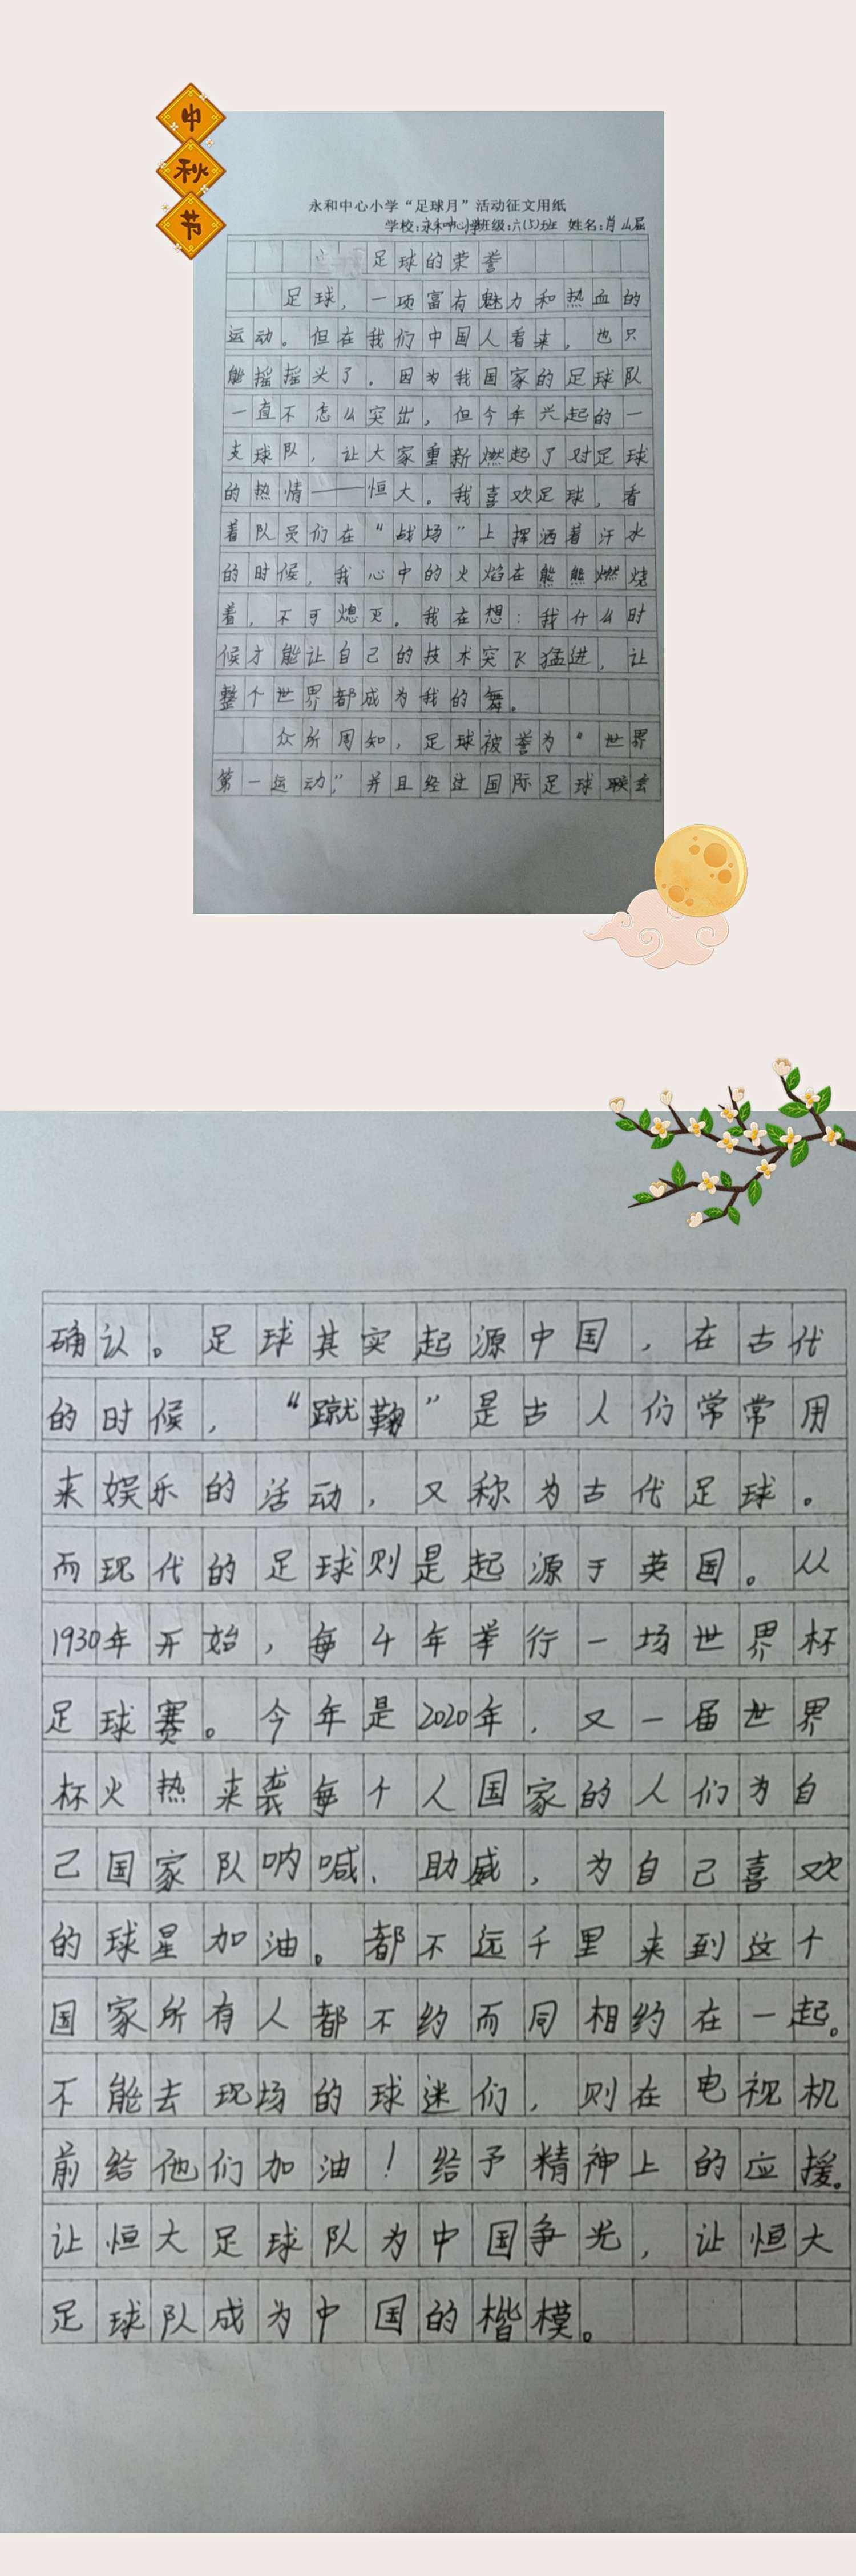 中
秋
节
永和中心小学“足球月”活动征文用纸
学校:永和中心小学班级:六(5)班 姓名:肖屾届
足球的荣誉
足球，一项富有魅力和热血的
运动。但在我们中国人看来，也只
能摇摇头了。因为我国家的足球队
一直不怎么突出，但今年兴起的一
支球队，让大家重新燃起了对足球
的热情——恒大。我喜欢足球，看
着队员们在“战场”上挥洒着汗水
的时候，我心中的火焰在熊熊燃烧
着，不可熄灭。我在想：我什么时
候才能让自己的技术突飞猛进，让
整个世界都成为我的舞。
众所周知，足球被誉为“世界
第一运动”，并且经过国际足球联会
确认。足球其实起源中国，在古代
的时候，“蹴鞠”是古人们常常用
来娱乐的活动，又称为古代足球。
而现代的足球则是起源于英国。从
1930年开始，每4年举行一场世界杯
足球赛。今年是2020年，又一届世界
杯火热来袭每个人国家的人们为自
己国家队呐喊、助威，为自己喜欢
的球星加油。都不远千里来到这个
国家所有人都不约而同相约在一起。
不能去现场的球迷们，则在电视机
前给他们加油！给予精神上的应援。
让恒大足球队为中国争光，让恒大
足球队成为中国的楷模。